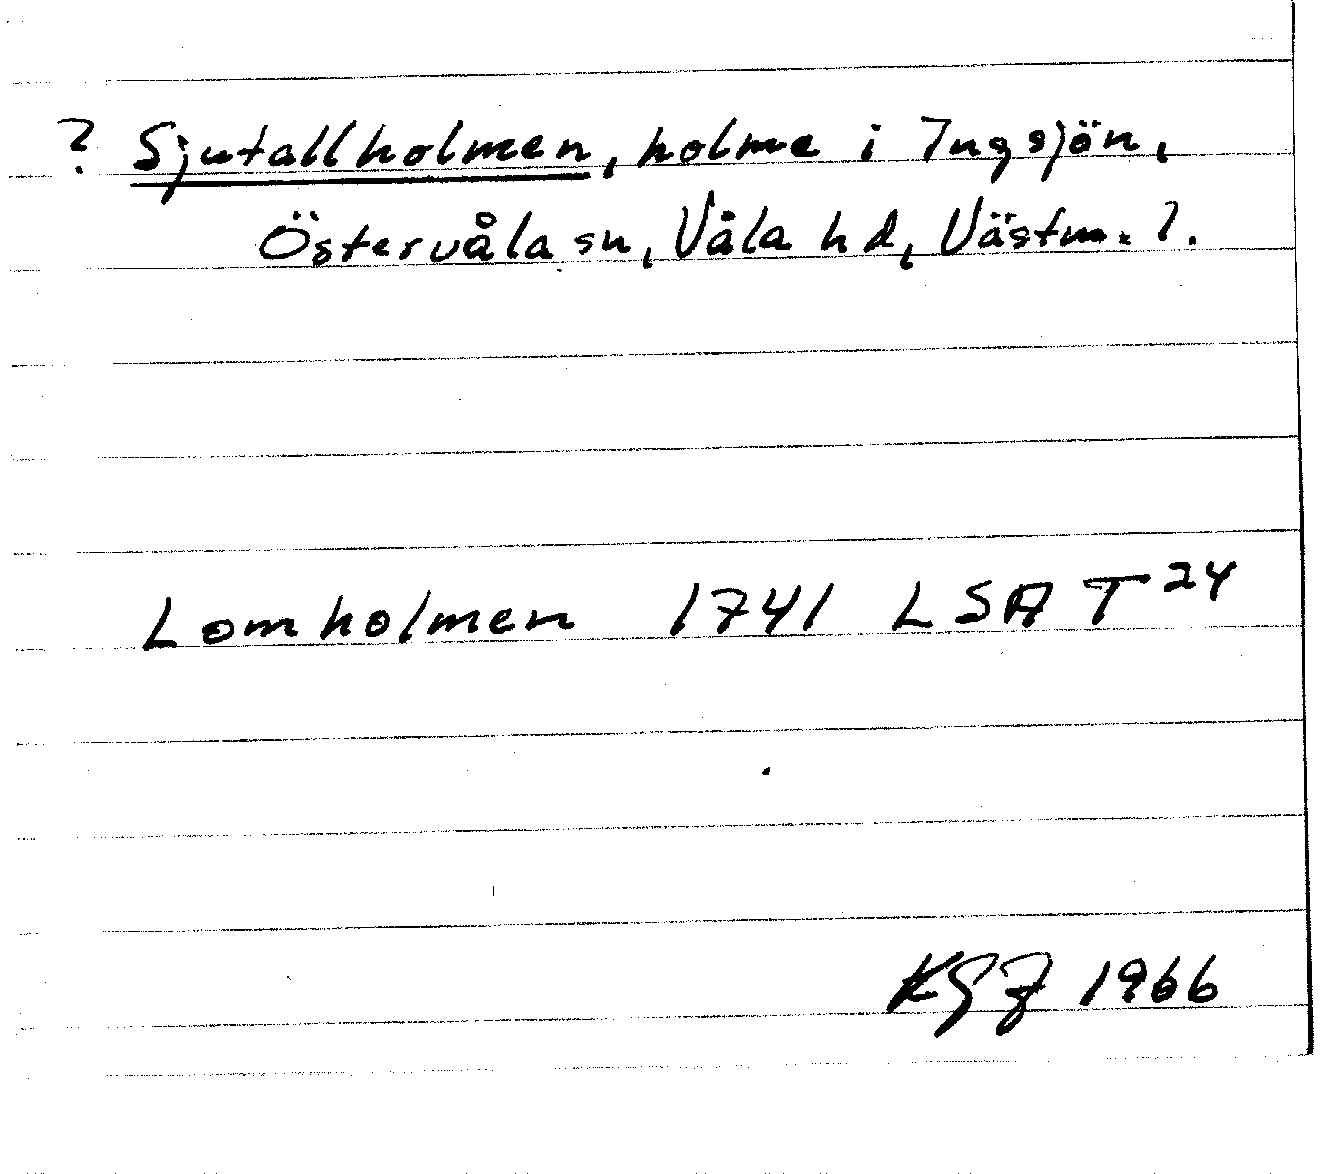 ? Sjutallholmen, holme i Ingsjön,
Östervåla sn, Våla hd, Västm. l.
Lomholmen 1741 LSA T 24
KGJ 1966